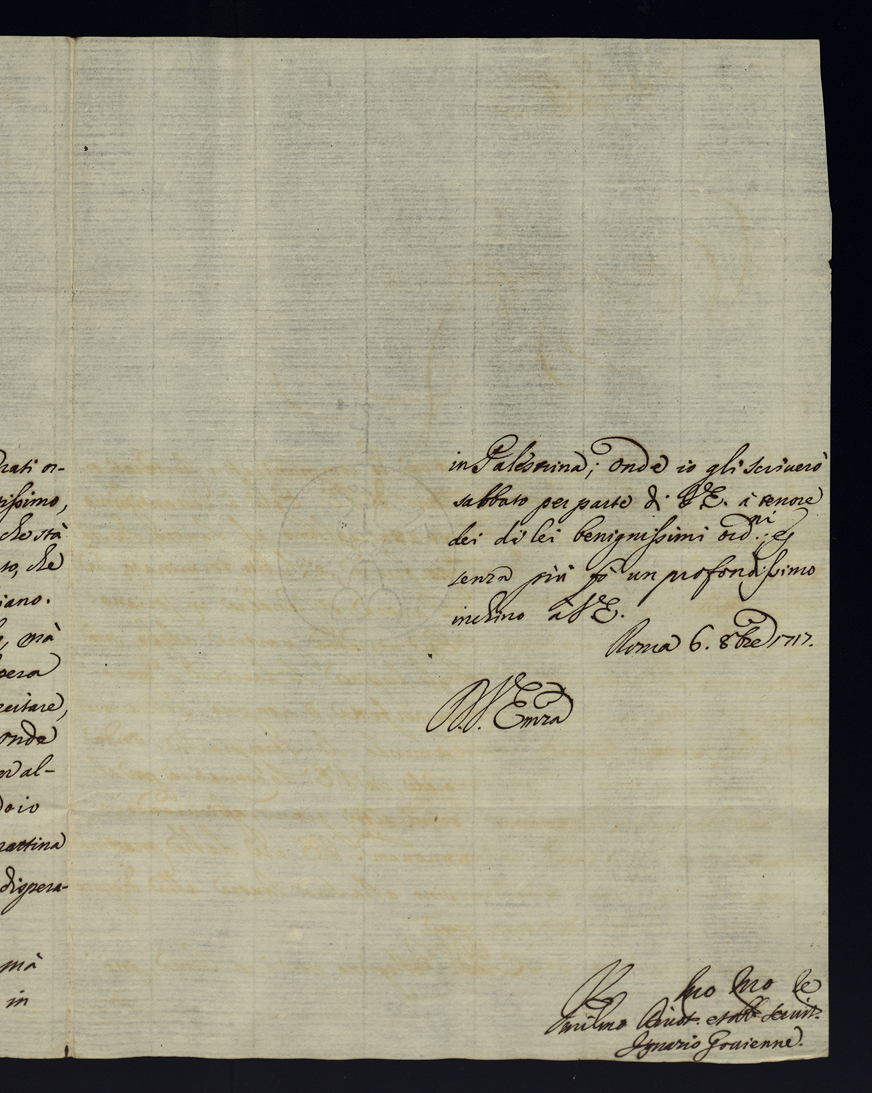 rati or-
rissimo,
che stà
to, che
iano.
, mà
pera
ecitare,
onde
al-
io
mattina
dispera-
mà
in
in Palestrina; onde io gli scriverò
sabbato per parte di V.E. à tenore
dei di lei benignissimi ord.ni; e
senza più fò un profondissimo
inchino à V.E.
Roma 6. 8bre 1717.
D.V. Emza
Umilmo Divot. et obb. Servit.
Ignazio